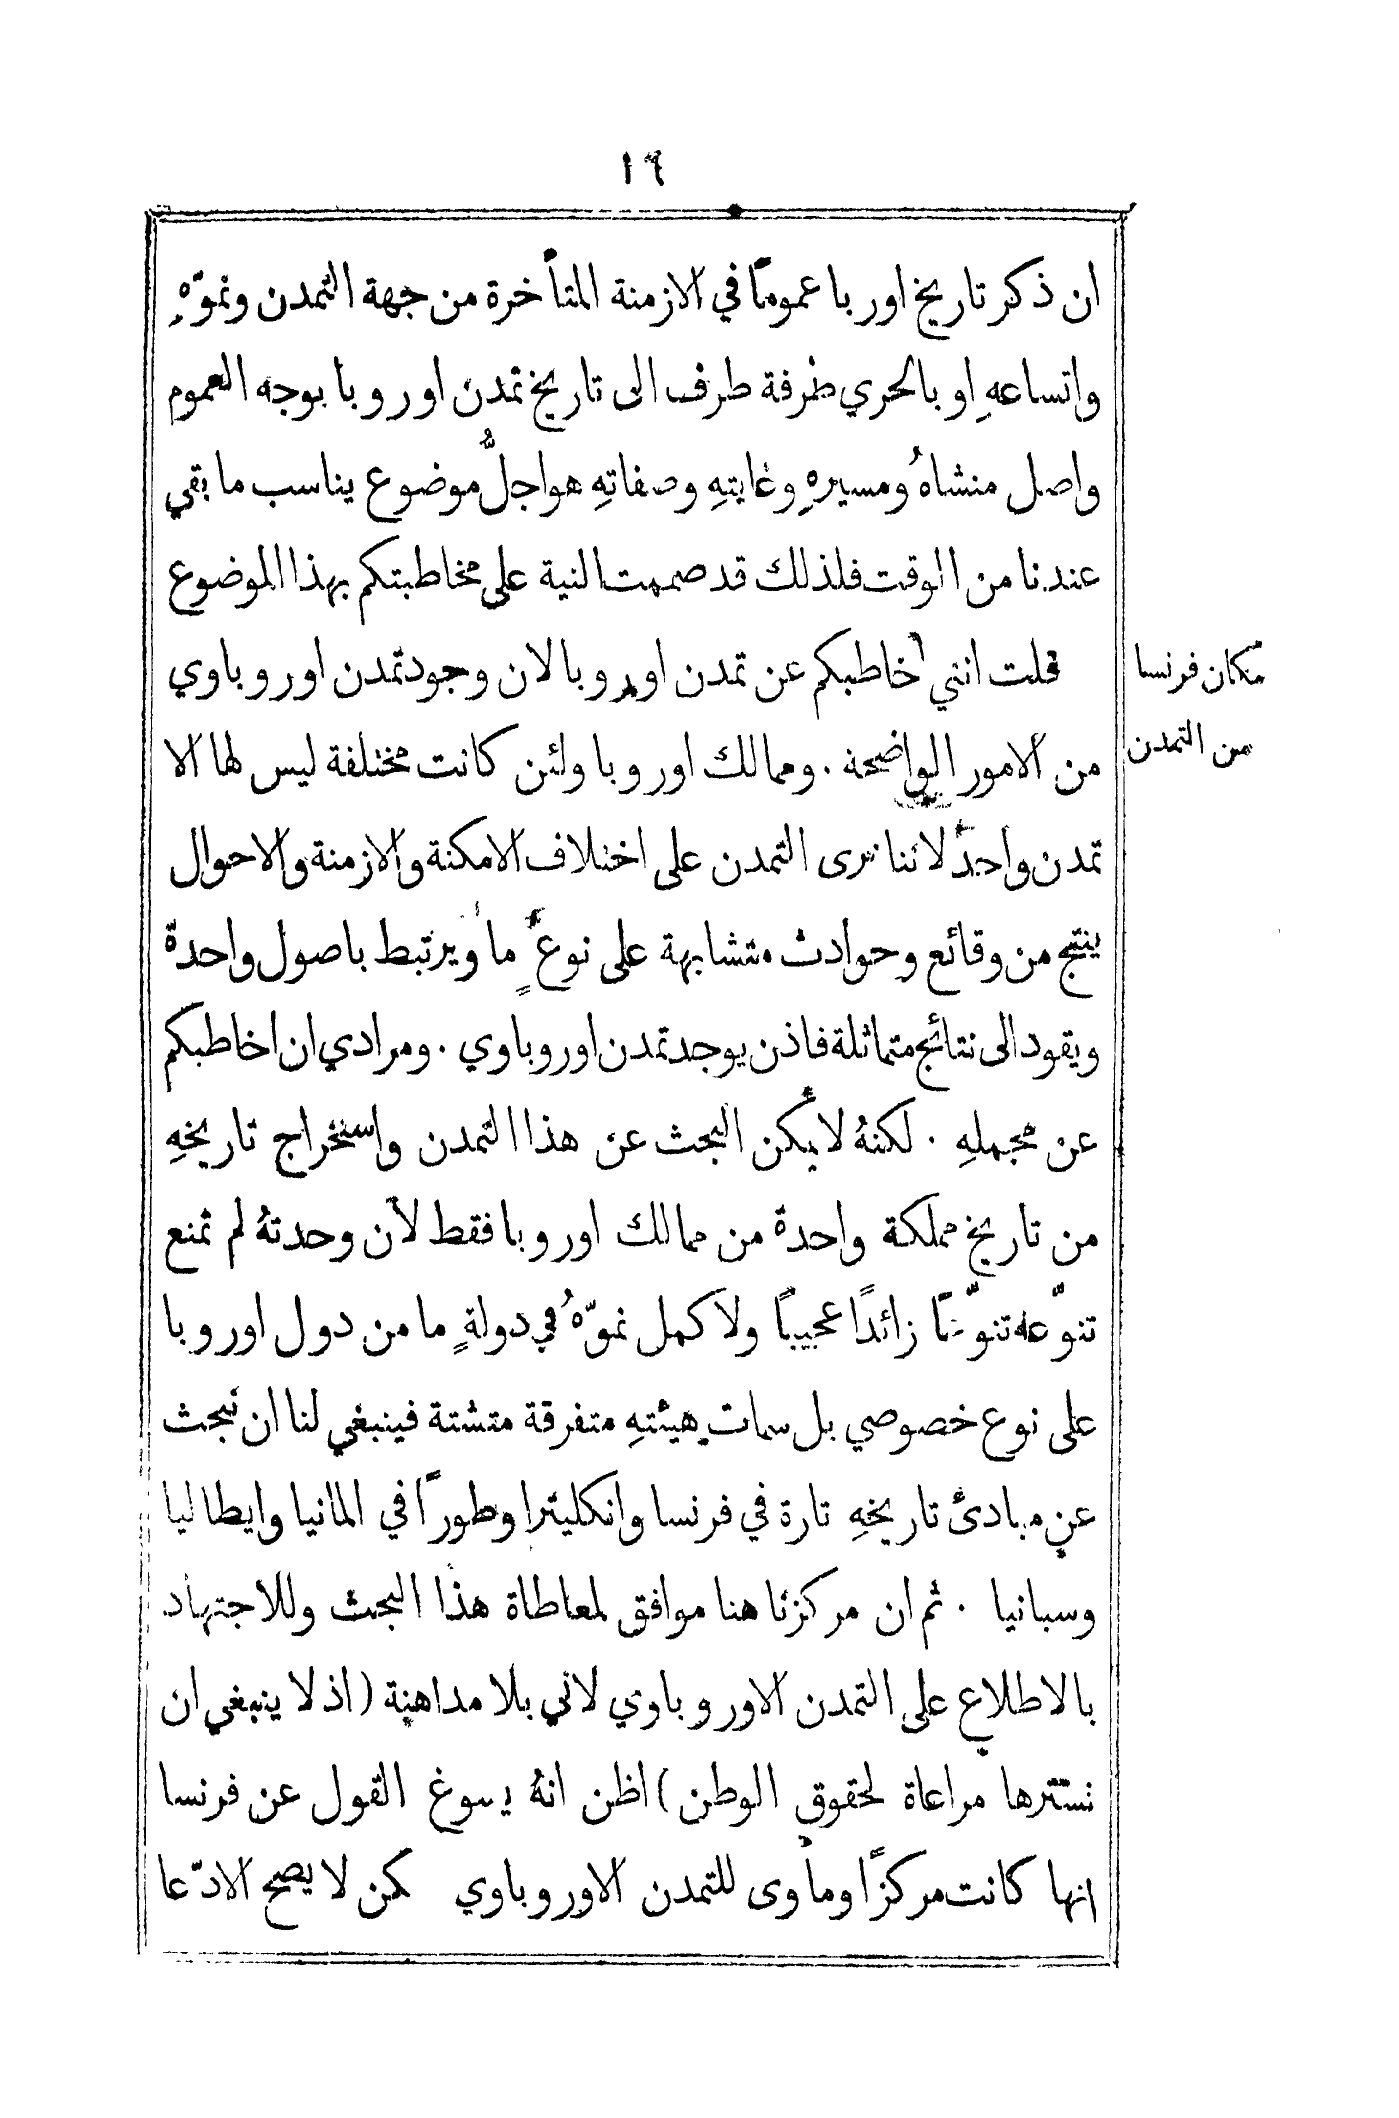 ١٩
ان ذكر تاريخ اوربا عموماً في الازمنة المتأخرة من جهة التمدن ونموّهِ
واتساعهِ او بالحري طرفة طرف الى تاريخ تمدن اوروبا بوجه العموم
واصل منشاهُ ومسيرهِ وغايتهِ وصفاتهِ هو اجلُّ موضوع يناسب ما بقي
عندنا من الوقت فلذلك قد صممت النية على مخاطبتكم بهذا الموضوع
قلت انني اخاطبكم عن تمدن اوروبا لان وجود تمدن اوروباوي
مكان فرنسا
من التمدن
من الامور الواضحة . وممالك اوروبا ولئن كانت مختلفة ليس لها الا
تمدن واحدٌ لاننا نرى التمدن على اختلاف الامكنة والازمنة والاحوال
ينتج من وقائع وحوادث متشابهة على نوعٍ ما ويرتبط باصول واحدة
ويقود الى نتائج متماثلة فاذن يوجد تمدن اوروباوي . ومرادي ان اخاطبكم
عن مجملهِ . لكنهُ لا يُمكن البحث عن هذا التمدن واستخراج تاريخهِ
من تاريخ مملكة واحدة من ممالك اوروبا فقط لأن وحدتهُ لم تمنع
تنوّعه تنوّعاً زائدًا عجيبًا ولا كمل نموّهُ في دولةٍ ما من دول اوروبا
على نوع خصوصي بل سمات هيئتهِ متفرقة متشتة فينبغي لنا ان نبحث
عن مبادئ تاريخهِ تارة في فرنسا وانكليترا وطورًا في المانيا وايطاليا
وسبانيا . ثم ان مركزنا هنا موافق لمعاطاة هذا البحث وللاجتهاد
بالاطلاع على التمدن الاوروباوي لاني بلا مداهنة (اذ لا ينبغي ان
نستترها مراعاة لحقوق الوطن) اظن انهُ يسوغ القول عن فرنسا
انها كانت مركزًا ومأوى للتمدن الاوروباوي لكن لا يصح الادّعا